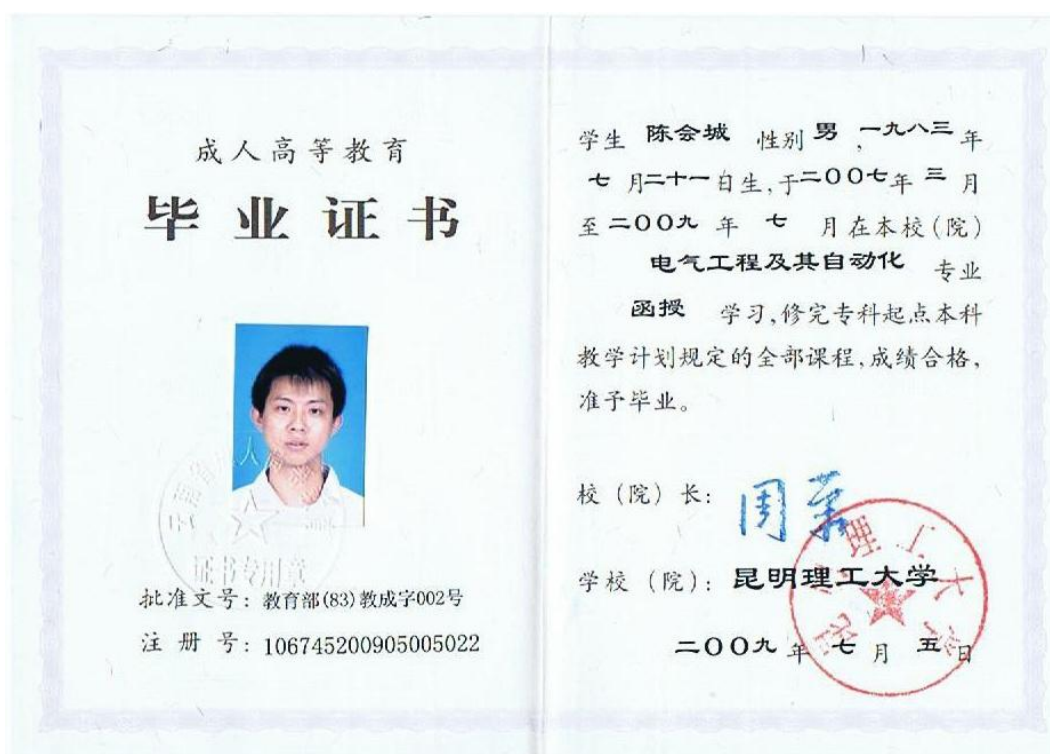 成人高等教育
毕业证书
证书专用章
批准文号：教育部(83)教成字002号
注册号：106745200905005022
学生 陈会城 性别 男，一九八三年
七月二十一日生，于二00七年三月
至二00九年七月在本校(院)
电气工程及其自动化 专业
函授 学习，修完专科起点本科
教学计划规定的全部课程，成绩合格，
准予毕业。
校（院）长：
学校（院）：昆明理工大学
二00九年七月五日
昆明理工大学